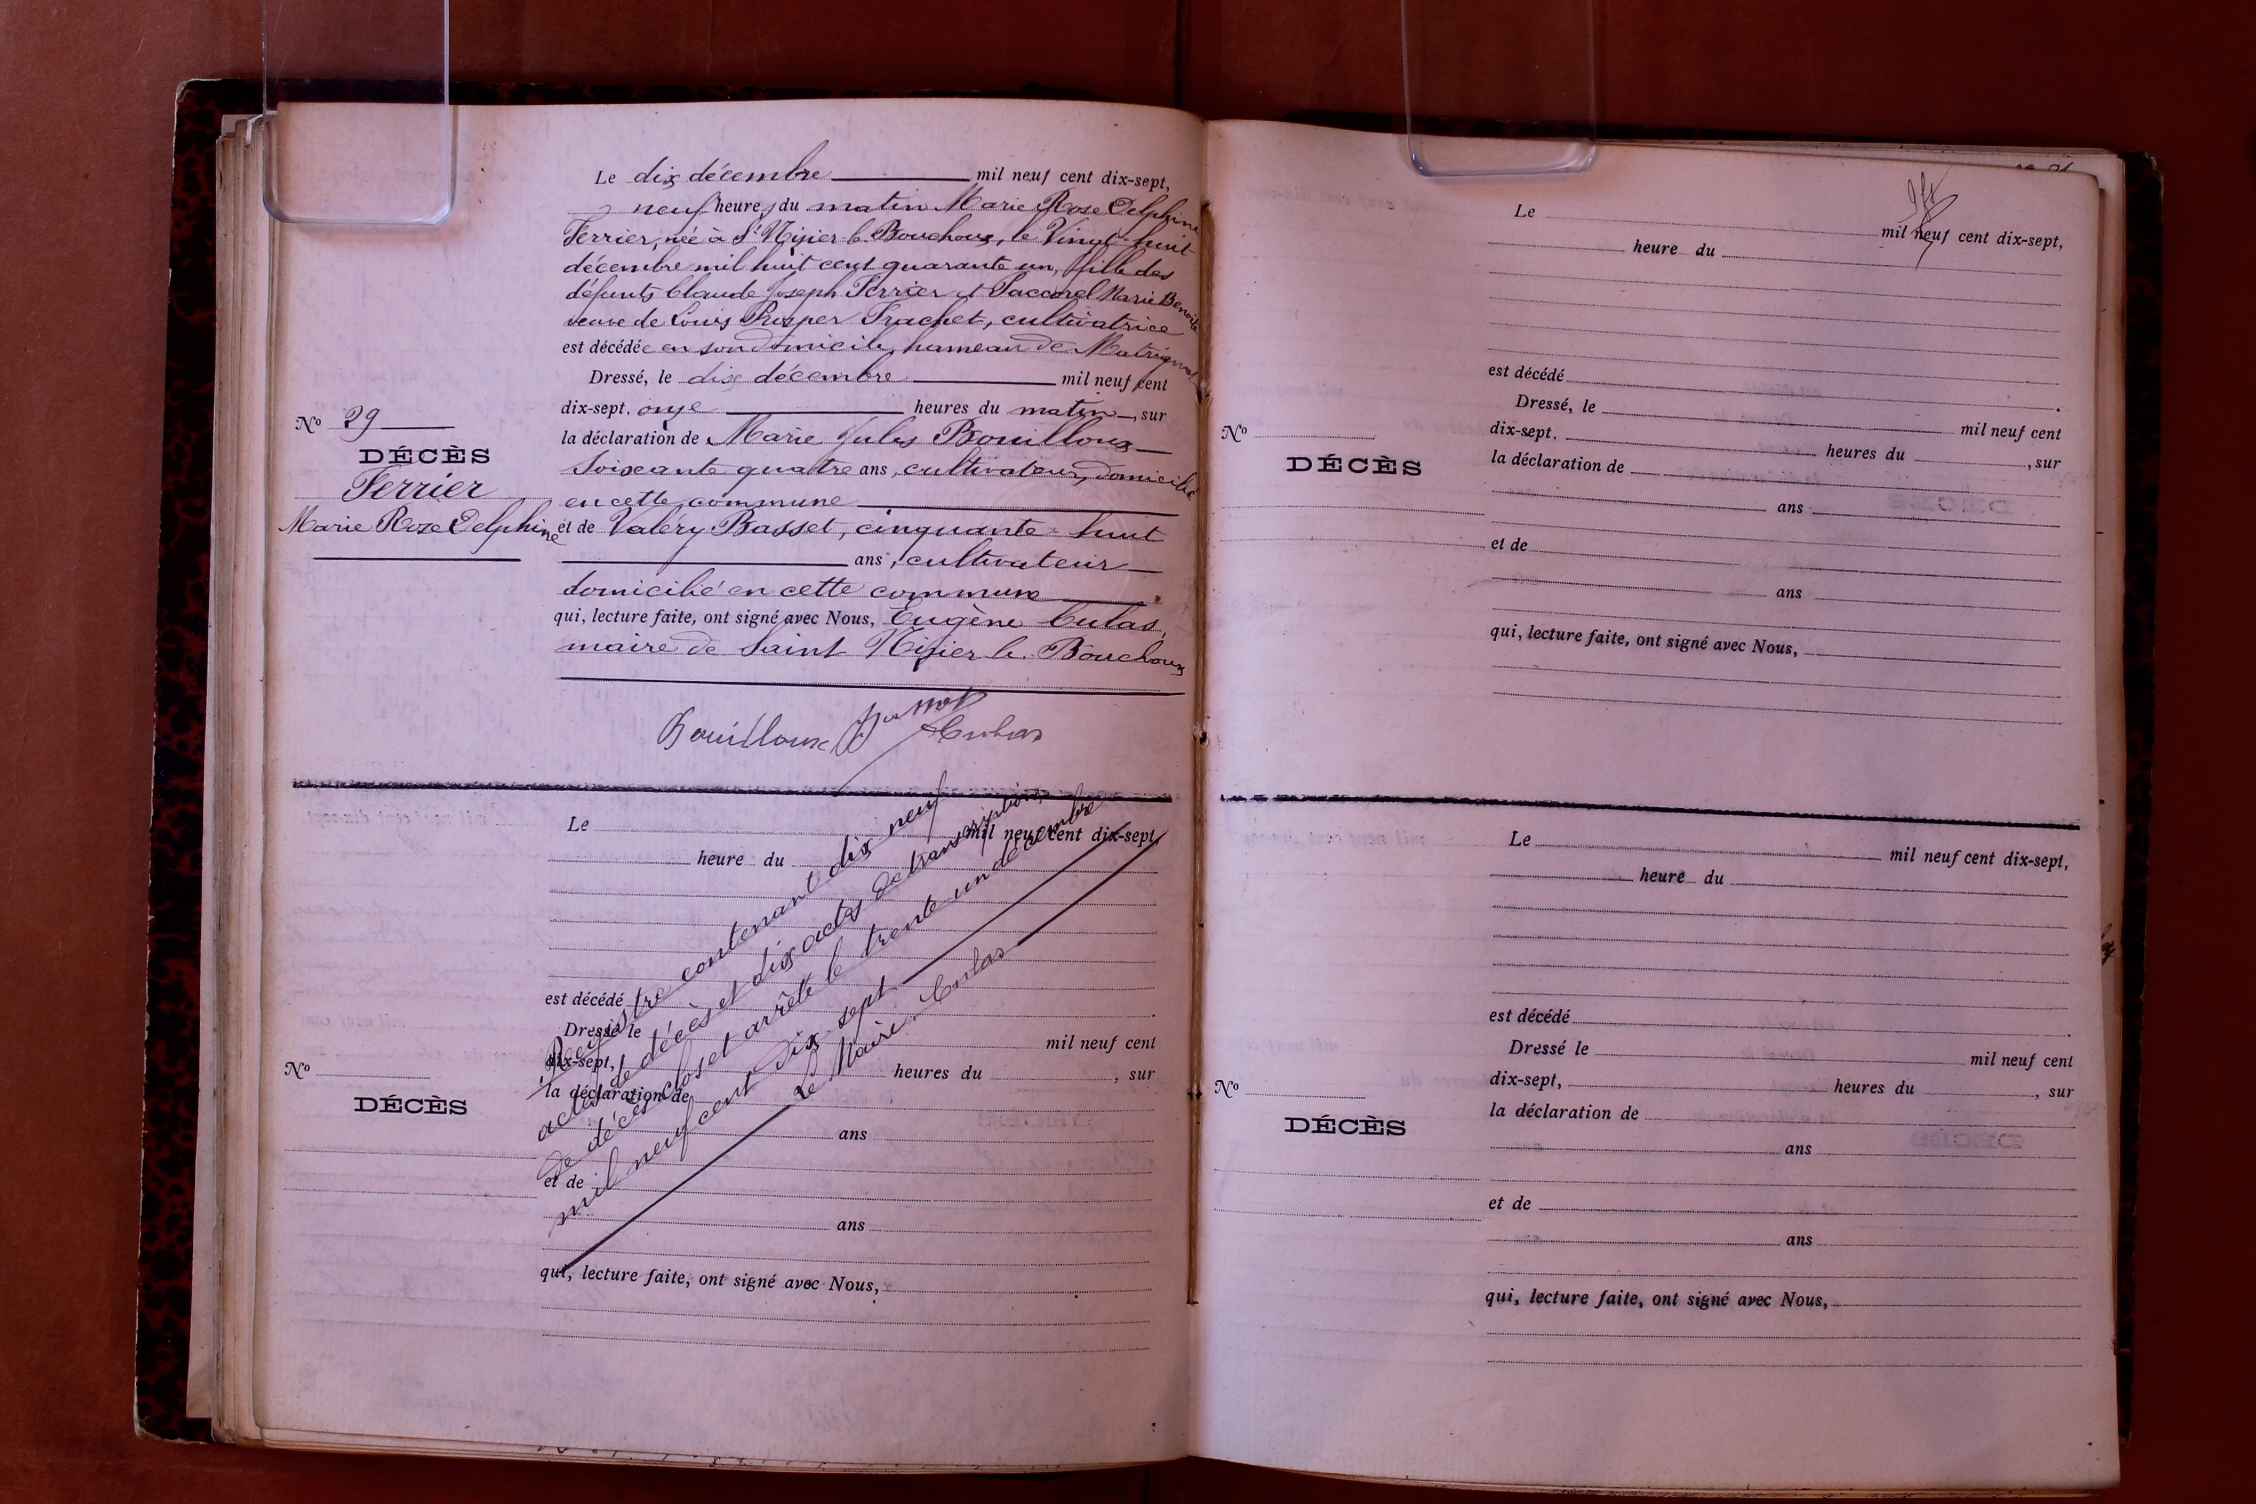 Le dix décembre mil neuf cent dix-sept,
neuf heures du matin Marie Rose Delphine
Ferrier, née à St Nizier-le-Bouchoux, le Vingt-huit
décembre mil huit cent quarante un, fille des
défunts Claude Joseph Ferrier et Marie Benoite
veuve de Louis Prosper, cultivatrice
est décédée en son domicile, hameau de
Dressé, le dix décembre mil neuf cent
dix-sept, onze heures du matin, sur
la déclaration de Marie Jules Bouilloux
Soixante quatre ans, cultivateur, domicilié
en cette commune
et de Valéry Basset, cinquante-huit
ans, cultivateur
domicilié en cette commune
qui, lecture faite, ont signé avec Nous, Eugène Culas,
maire de Saint Nizier le Bouchoux
Bouilloux Basset Culas
No 29
DÉCÈS
Ferrier
Marie Rose Delphine
Le mil neuf cent dix-sept,
heure du
est décédé
Dressé le
mil neuf cent
dix-sept, heures du , sur
la déclaration de
ans
et de
ans
qui, lecture faite, ont signé avec Nous,
No
DÉCÈS
Registre contenant dix neuf
actes de décès et dix actes de transcription
de décès clos et arrêté le trente un décembre
mil neuf cent dix sept
Le Maire. Culas
Le mil neuf cent dix-sept,
heure du
est décédé
Dressé, le mil neuf cent
dix-sept. heures du , sur
la déclaration de
ans
et de
ans
qui, lecture faite, ont signé avec Nous,
No
DÉCÈS
Le mil neuf cent dix-sept,
heure du
est décédé
Dressé le mil neuf cent
dix-sept, heures du , sur
la déclaration de
ans
et de
ans
qui, lecture faite, ont signé avec Nous,
No
DÉCÈS